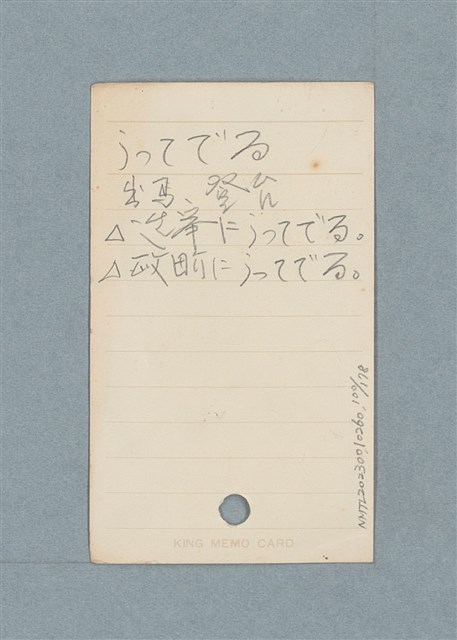 うってでる
出馬、登台
△選挙にうってでる。
△政界にうってでる。
KING MEMO CARD
NMTL20230010260.100/178